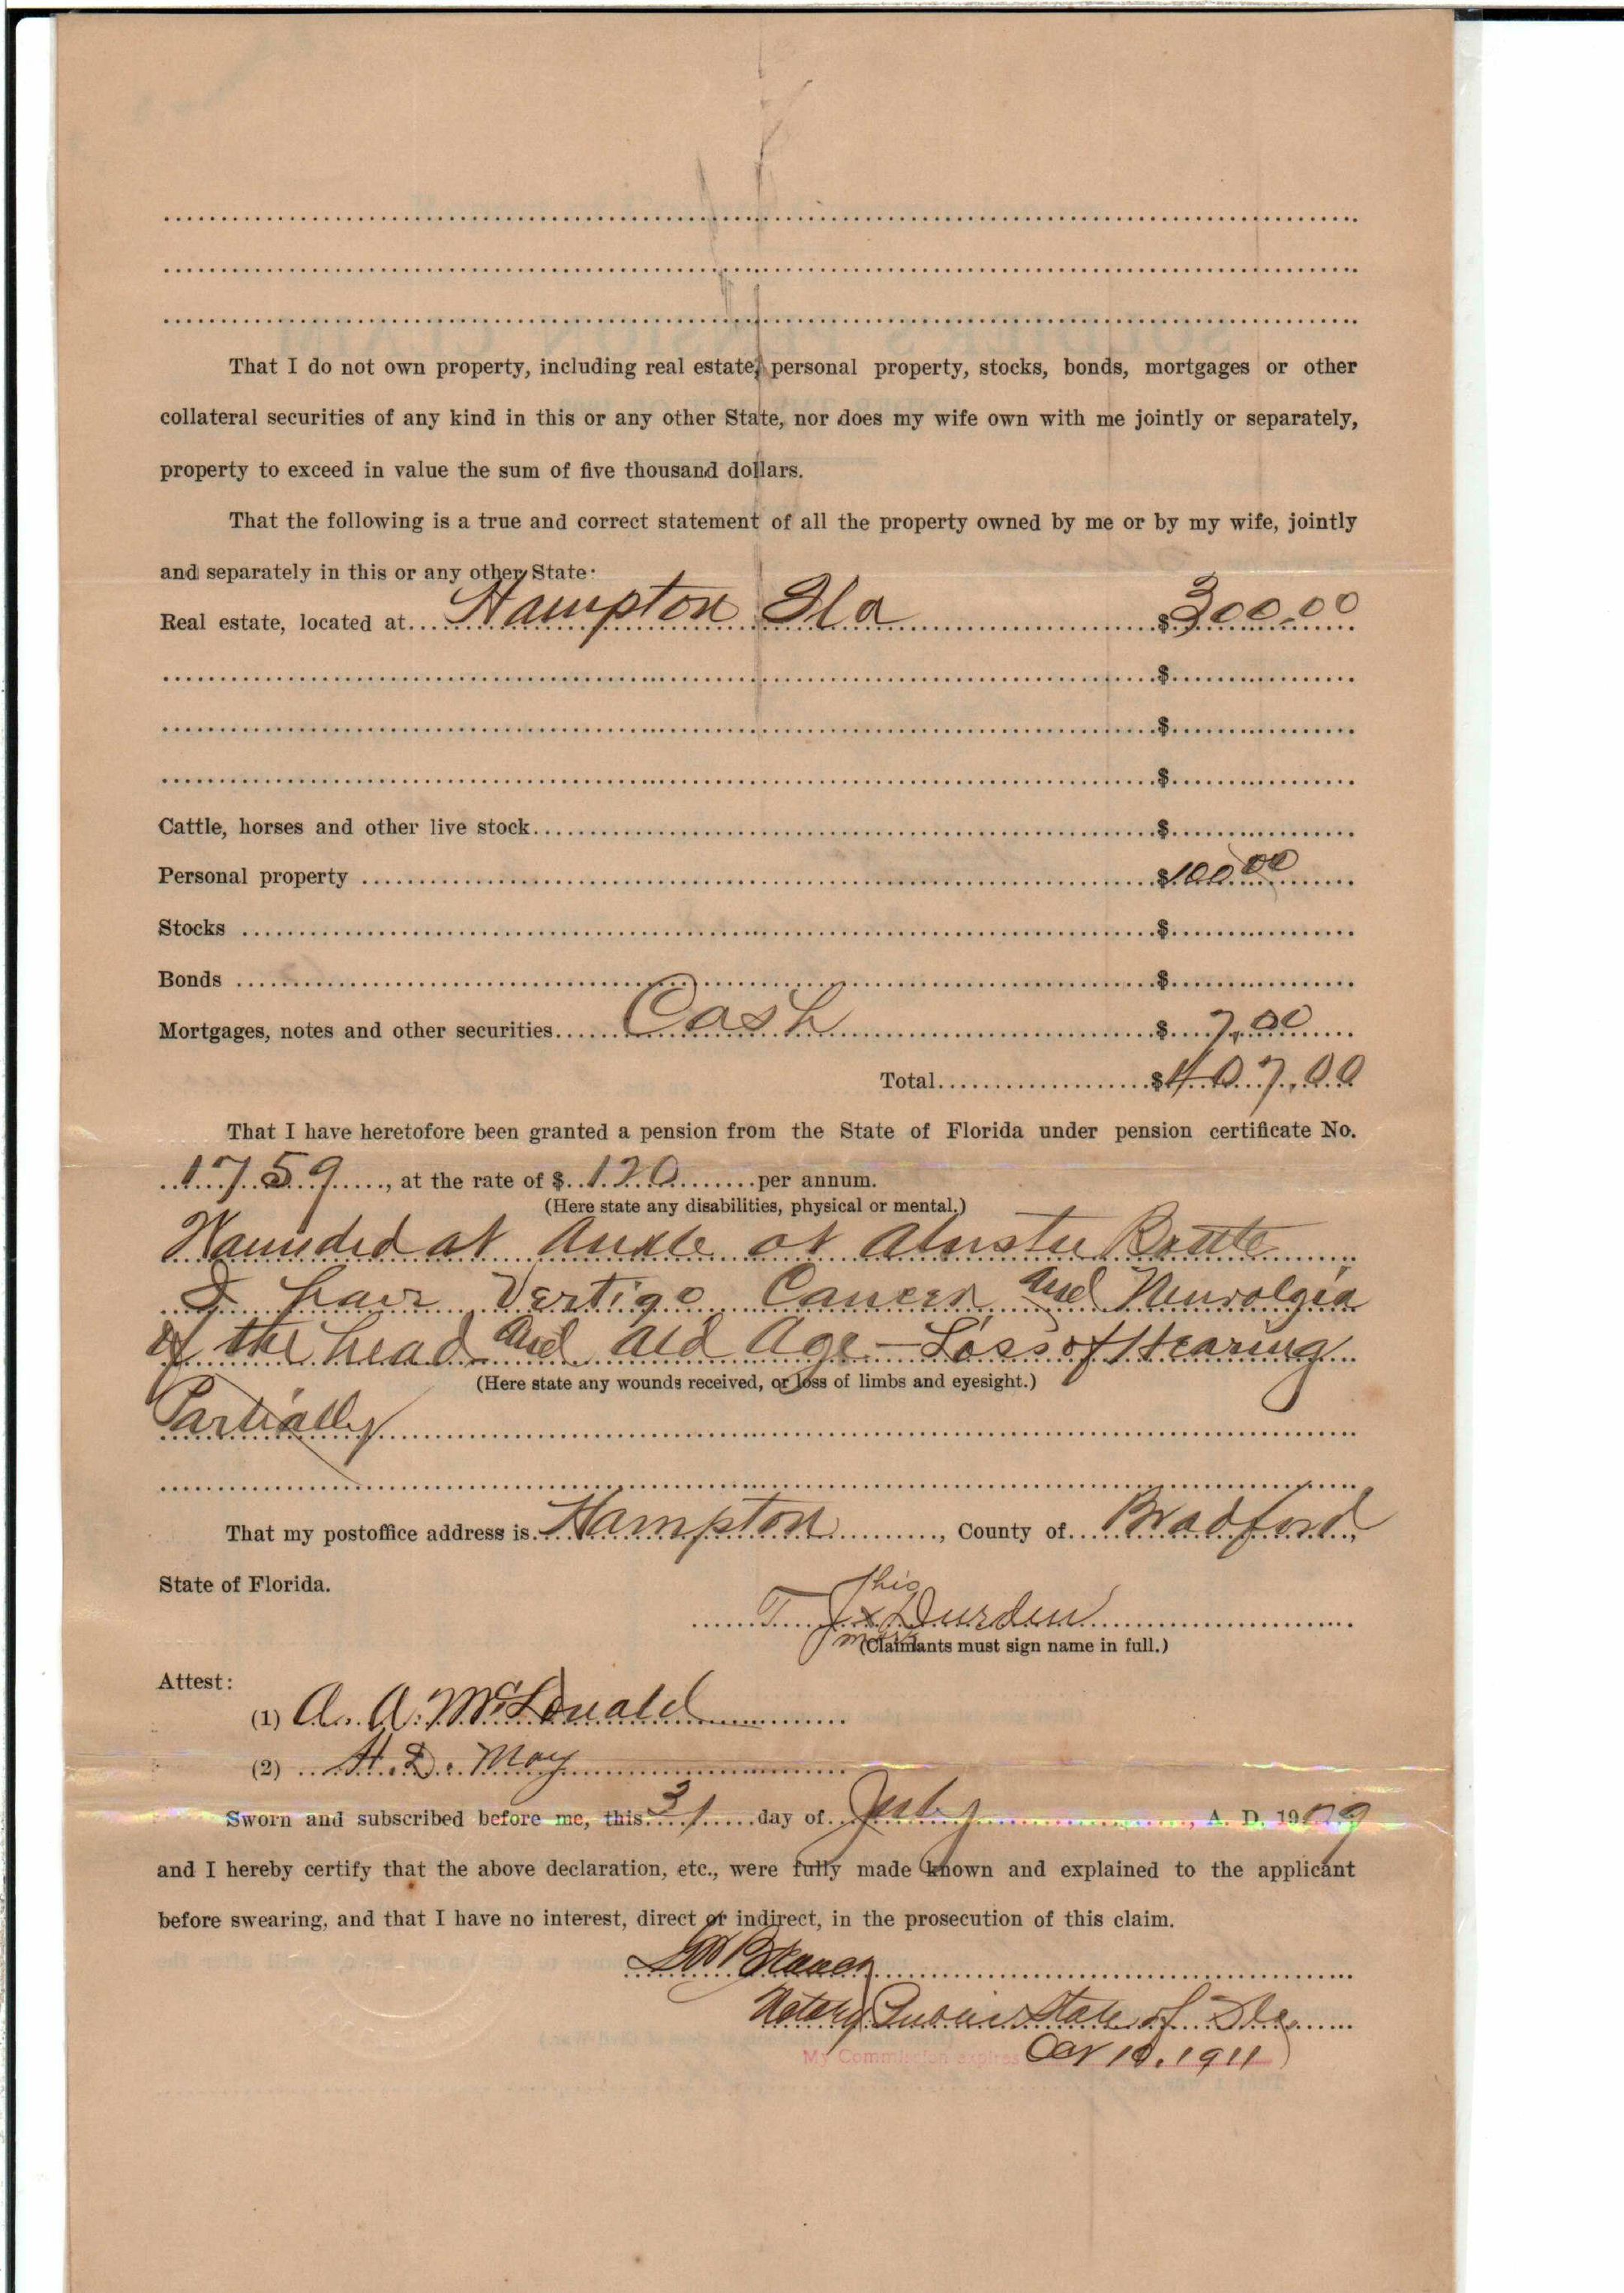 That I do not own property, including real estate, personal property, stocks, bonds, mortgages or other
collateral securities of any kind in this or any other State, nor does my wife own with me jointly or separately,
property to exceed in value the sum of five thousand dollars.
That the following is a true and correct statement of all the property owned by me or by my wife, jointly
and separately in this or any other State:
Real estate, located at Hampton Fla $300.00
$
$
$
Cattle, horses and other live stock $
Personal property $100.00
Stocks $
Bonds $
Mortgages, notes and other securities Cash $ 7.00
Total $407.00
That I have heretofore been granted a pension from the State of Florida under pension certificate No.
1759, at the rate of $ 120 per annum.
(Here state any disabilities, physical or mental.)
Wounded at Ankle at
I have Vertigo Cancer and Neurolgia
of the head and old Age - Loss of Hearing
(Here state any wounds received, or loss of limbs and eyesight.)
Partially
That my postoffice address is Hampton, County of Bradford,
State of Florida.
his
T. J x Durden
mark
(Claimants must sign name in full.)
Attest:
(1) A. A. McDonald
(2) H. D. May
Sworn and subscribed before me, this 31 day of July, A. D. 1909
and I hereby certify that the above declaration, etc., were fully made known and explained to the applicant
before swearing, and that I have no interest, direct or indirect, in the prosecution of this claim.
Notary Public State of Fla
My Commission expires Oct 10, 1911